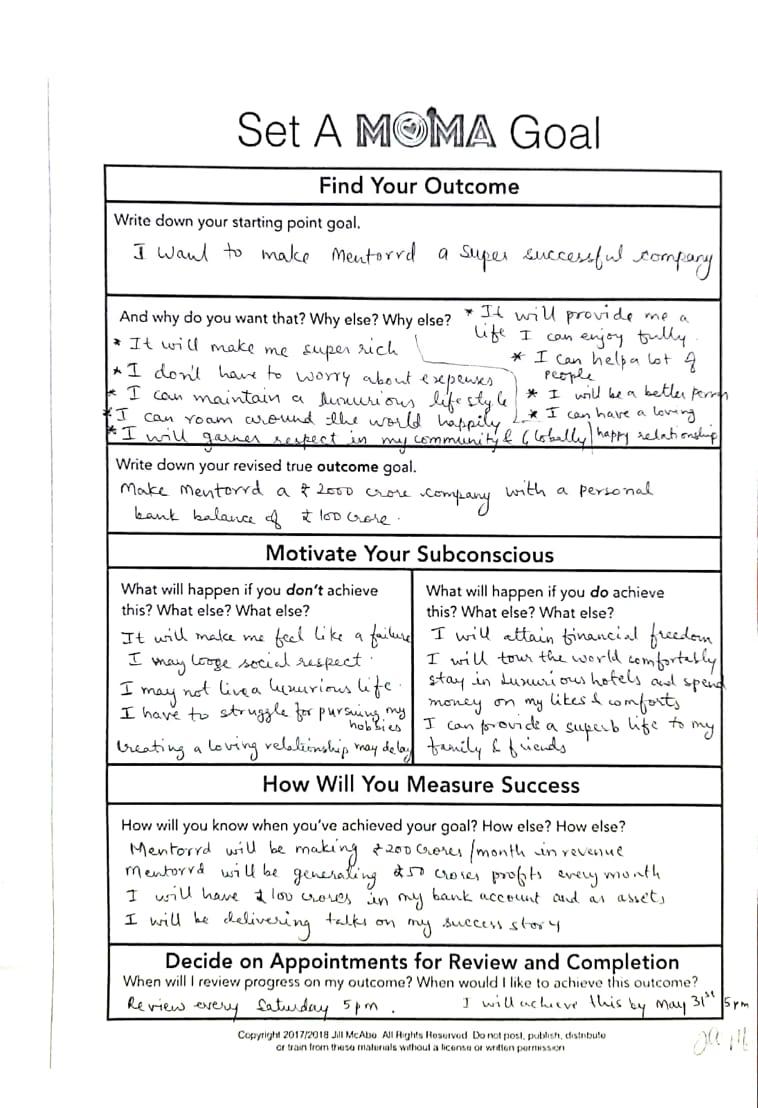 Set A MOMA Goal
Find Your Outcome
Write down your starting point goal.
I want to make Mentorrd a super successful company
And why do you want that? Why else? Why else?
* It will make me super rich
* I don't have to worry about expenses
* I can maintain a luxurious lifestyle
* I can roam around the world happily
* I will garner respect in my community & (Globally)
* It will provide me a
life I can enjoy fully.
* I can help a lot of
people
* I will be a better person
* I can have a loving
happy relationship
Write down your revised true outcome goal.
Make Mentorrd a ₹ 2000 crore company with a personal
bank balance of ₹ 100 crore.
Motivate Your Subconscious
What will happen if you don't achieve
this? What else? What else?
It will make me feel like a failure
I may looge social respect.
I may not live a luxurious life.
I have to struggle for pursuing my
hobbies
Creating a loving relationship may delay
What will happen if you do achieve
this? What else? What else?
I will attain financial freedom
I will tour the world comfortably
stay in luxurious hotels and spend
money on my likes & comforts
I can provide a superb life to my
family & friends
How Will You Measure Success
How will you know when you've achieved your goal? How else? How else?
Mentorrd will be making ₹200 Crores/month in revenue
Mentorrd will be generating ₹50 crores profits every month
I will have ₹100 crores in my bank account and as assets
I will be delivering talks on my success story
Decide on Appointments for Review and Completion
When will I review progress on my outcome? When would I like to achieve this outcome?
Review every Saturday 5pm. I will achieve this by May 31st 5pm
Copyright 2017/2018 Jill McAbe All Rights Reserved Do not post, publish, distribute
or train from these materials without a license or written permission